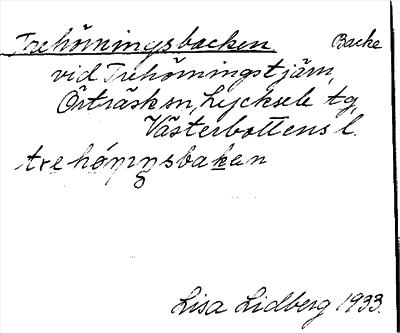 Trehörningsbacken Backe
vid Trehörningstjärn,
Örträsk sn, Lycksele tg,
Västerbottens l.
Lisa Lidberg 1933.